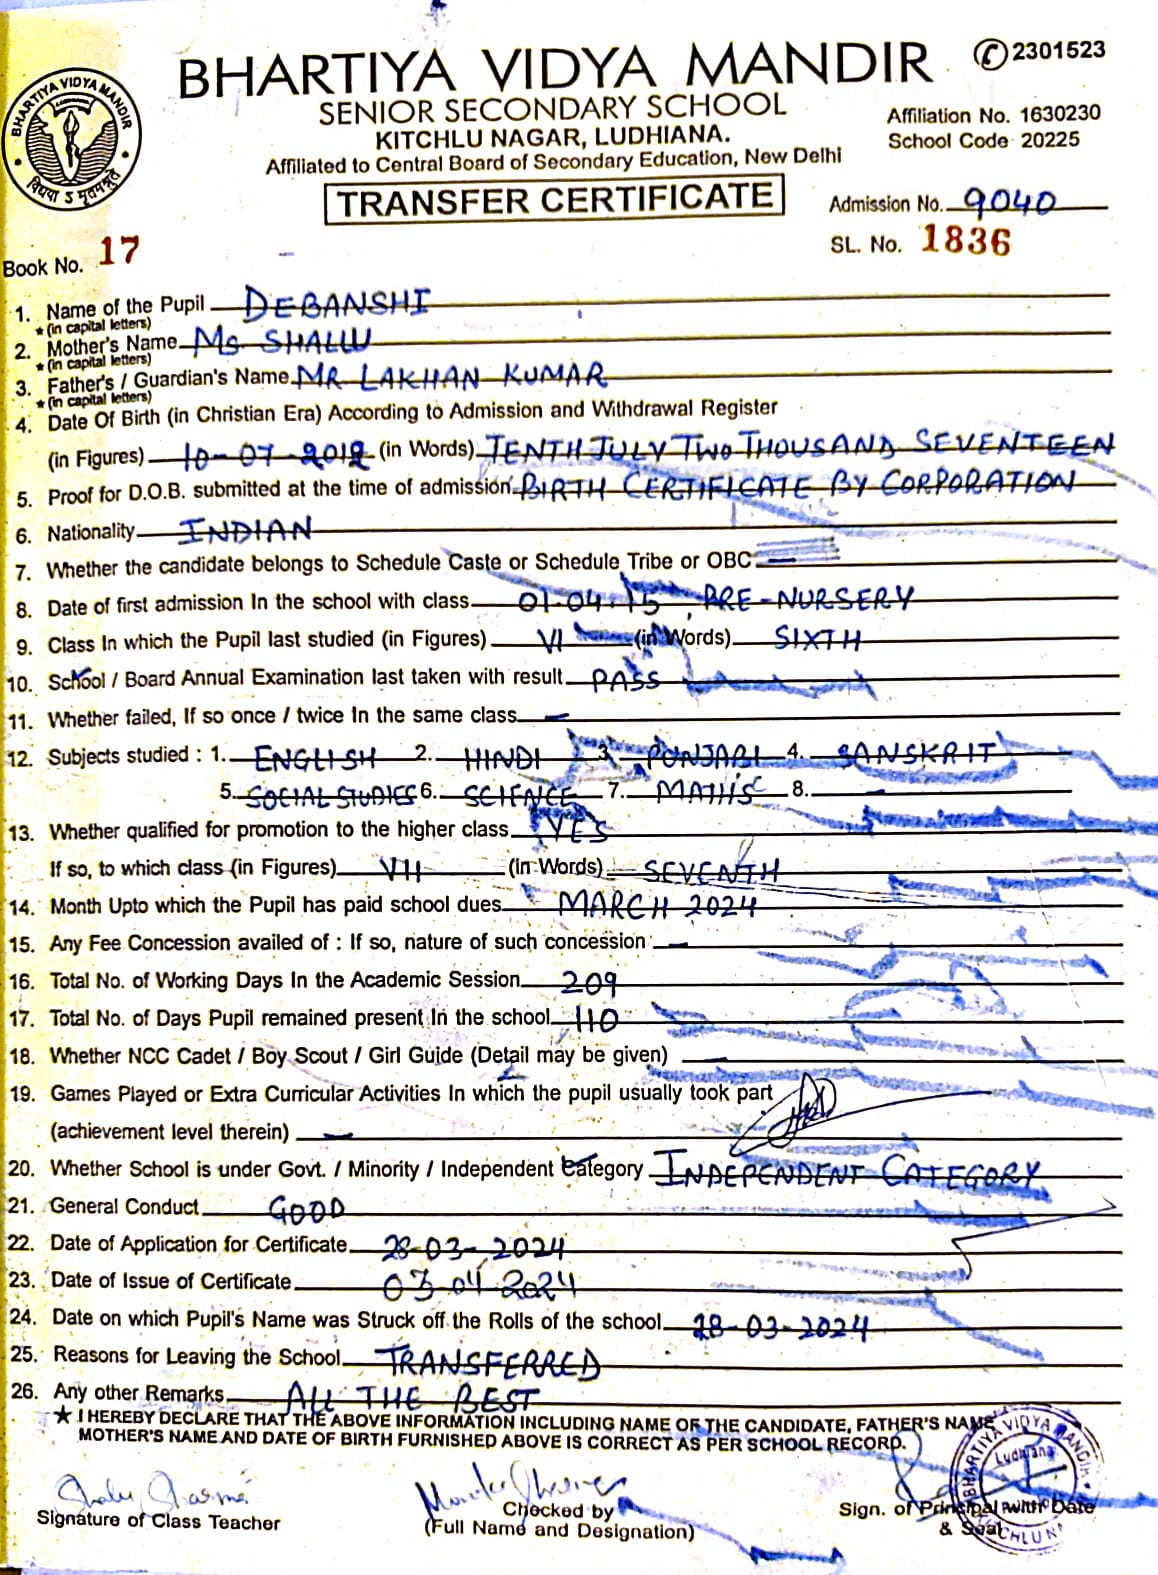 BHARTIYA VIDYA MANDIR
✆2301523
SENIOR SECONDARY SCHOOL
KITCHLU NAGAR, LUDHIANA.
Affiliated to Central Board of Secondary Education, New Delhi
Affiliation No. 1630230
School Code 20225
BHARTIYA VIDYA MANDIR
TRANSFER CERTIFICATE
Admission No. 9040
Book No. 17
SL. No. 1836
1. Name of the Pupil DEBANSHI
★(in capital letters)
2. Mother's Name Ms. SHALLU
★(in capital letters)
3. Father's / Guardian's Name MR LAKHAN KUMAR
★(in capital letters)
4. Date Of Birth (in Christian Era) According to Admission and Withdrawal Register
(in Figures) 10-07-2012 (in Words) TENTH JULY TWO THOUSAND SEVENTEEN
5. Proof for D.O.B. submitted at the time of admission BIRTH CERTIFICATE BY CORPORATION
6. Nationality INDIAN
7. Whether the candidate belongs to Schedule Caste or Schedule Tribe or OBC —
8. Date of first admission In the school with class 01-04-15, PRE-NURSERY
9. Class In which the Pupil last studied (in Figures) VI (in Words) SIXTH
10. School / Board Annual Examination last taken with result PASS
11. Whether failed, If so once / twice In the same class —
12. Subjects studied : 1. ENGLISH 2. HINDI 3. PUNJABI 4. SANSKRIT
5. SOCIAL STUDIES 6. SCIENCE 7. MATHS 8. —
13. Whether qualified for promotion to the higher class YES
If so, to which class (in Figures) VII (In Words) SEVENTH
14. Month Upto which the Pupil has paid school dues MARCH 2024
15. Any Fee Concession availed of : If so, nature of such concession —
16. Total No. of Working Days In the Academic Session 209
17. Total No. of Days Pupil remained present In the school 110
18. Whether NCC Cadet / Boy Scout / Girl Guide (Detail may be given) —
19. Games Played or Extra Curricular Activities In which the pupil usually took part
(achievement level therein) —
20. Whether School is under Govt. / Minority / Independent Category INDEPENDENT CATEGORY
21. General Conduct GOOD
22. Date of Application for Certificate 28-03-2024
23. Date of Issue of Certificate 03-04-2024
24. Date on which Pupil's Name was Struck off the Rolls of the school 28-03-2024
25. Reasons for Leaving the School TRANSFERRED
26. Any other Remarks ALL THE BEST
★ I HEREBY DECLARE THAT THE ABOVE INFORMATION INCLUDING NAME OF THE CANDIDATE, FATHER'S NAME
MOTHER'S NAME AND DATE OF BIRTH FURNISHED ABOVE IS CORRECT AS PER SCHOOL RECORD.
BHARTIYA VIDYA MANDIR
Ludhiana
Shalu Sharma
Signature of Class Teacher
Checked by
(Full Name and Designation)
Sign. of Principal with Date
& Seal